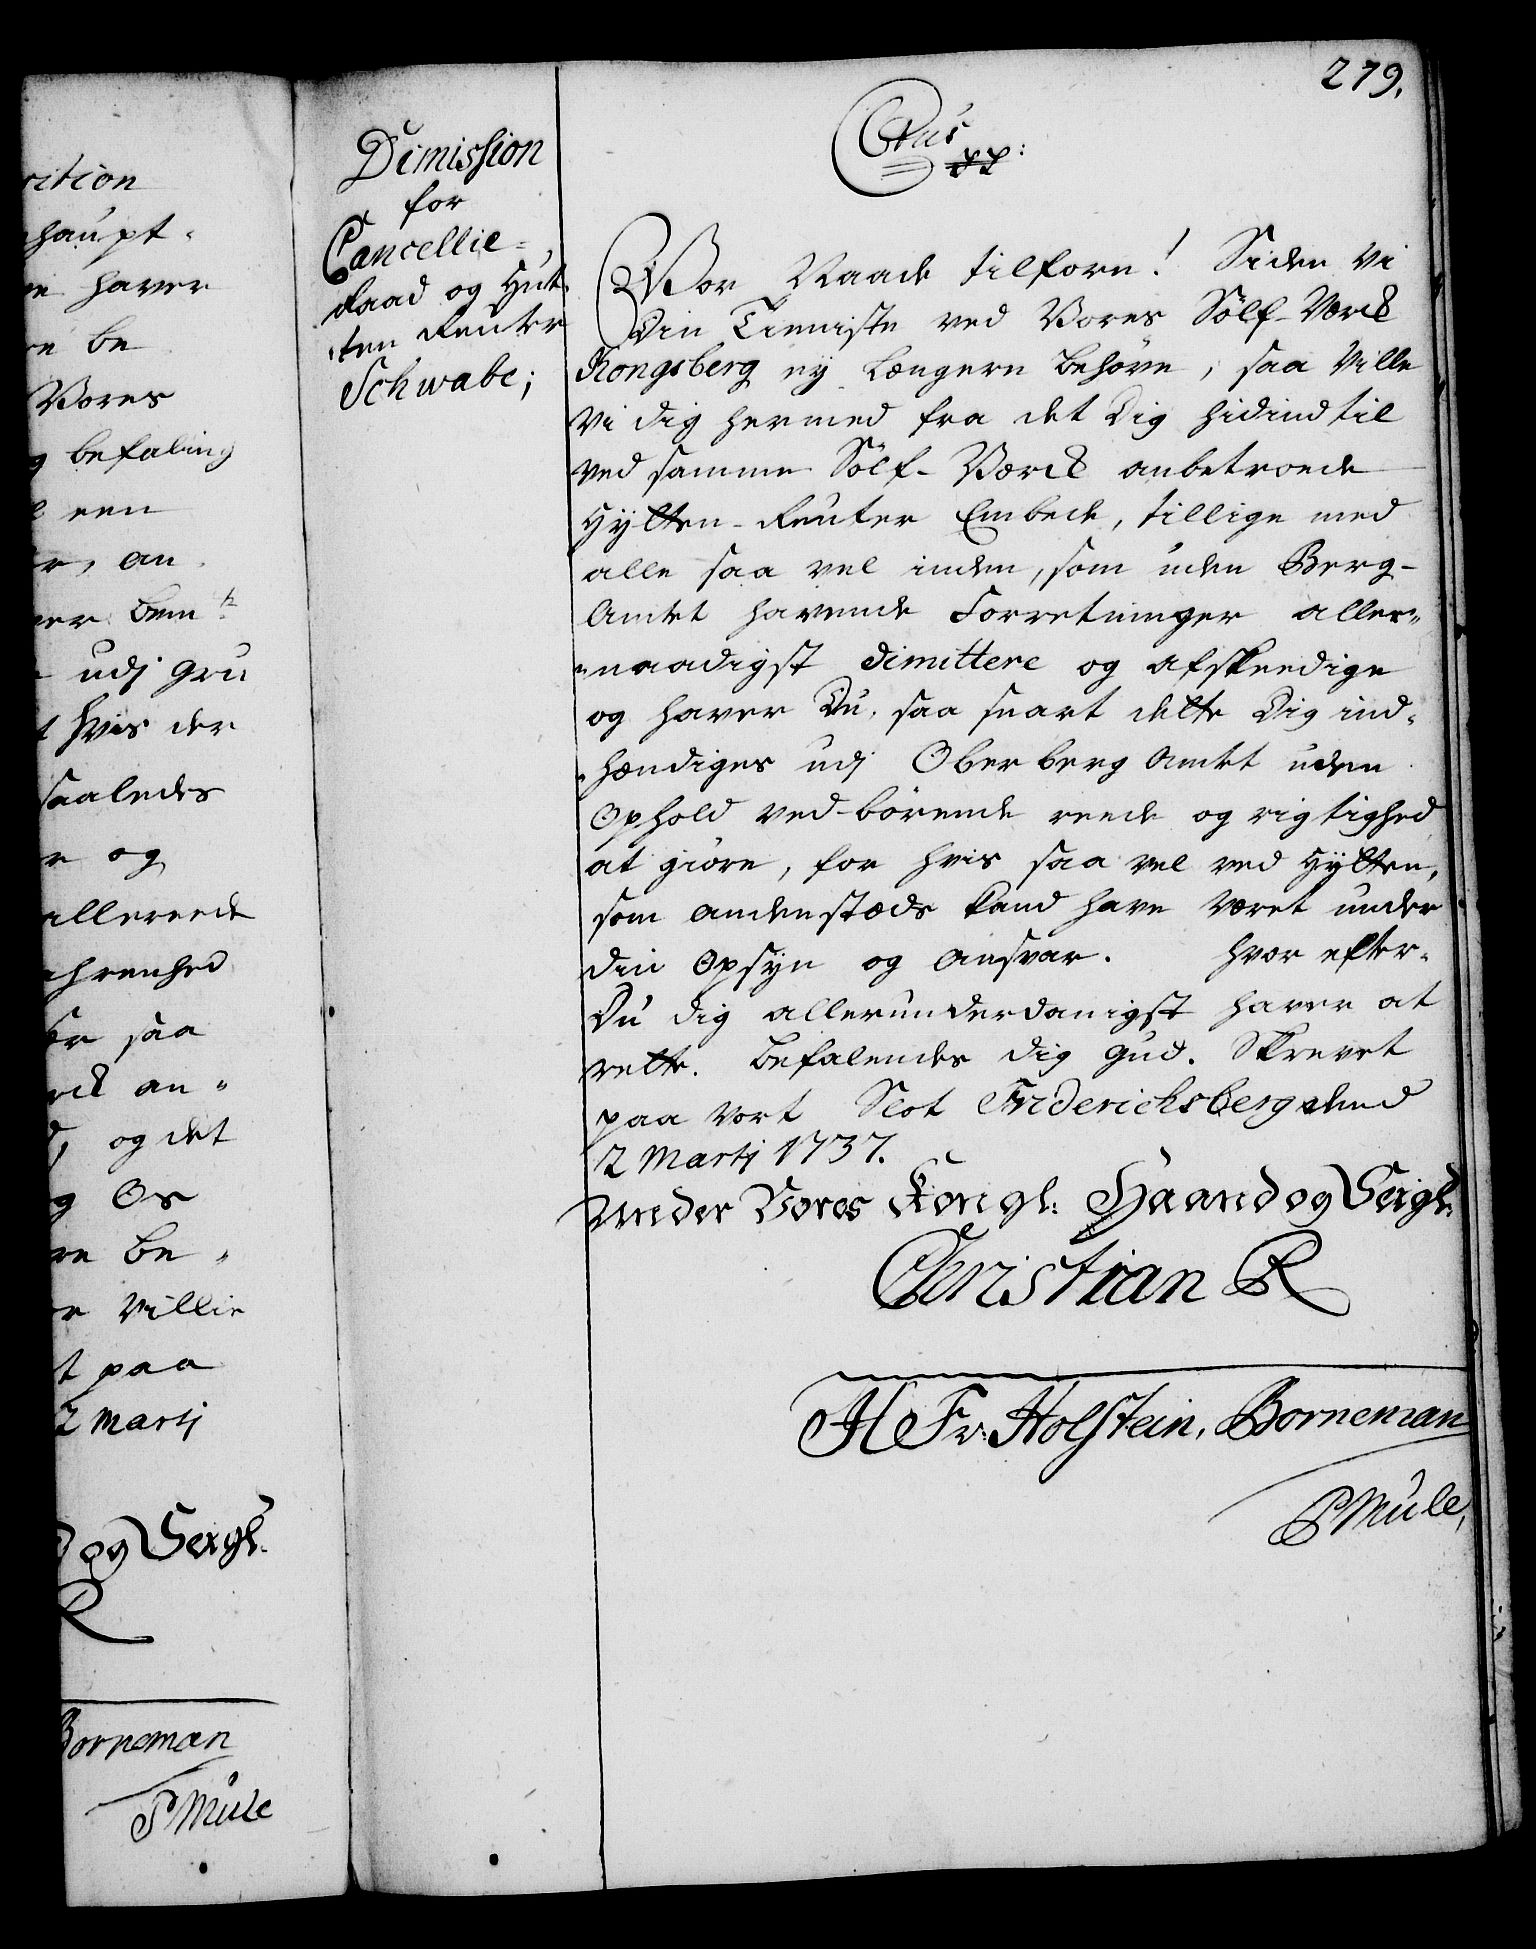 279.
rition
haupt-
haver
be
Vores
befaling
een
an
bem.te
udj Gru
hvis der
saaledes
og
allereede
saa
an-
og det
Os
be-
Villie
paa
2 Martj
og Seigl.
R
Borneman
PMule
Dimission
for
Cancellie-
Raad og Hüt-
ten Reuter
Schwabe;
Ctus
Vor Naade tilforn! Siden Vi
Din Tieniste ved Vores Sölf-Værck
Kongsberg ey længere behöve, saa Ville
Vi dig hermed fra det Dig hidindtil
ved samme Sölf-Værck anbetroede
Hÿtten-Reuter Embede, tillige med
alle saa vel inden, som uden Berg-
Amtet havende Forretninger aller-
-naadigst dimittere og afskeedige
og haver Du, saa snart dette Dig ind-
-hændiges udj Ober berg Amtet uden
Ophold ved-börende reede og rigtighed
at giöre, for hvis saa vel ved Hÿtten,
som andenstæds kand have været under
din Opsÿn og Ansvar. Hvor efter-
Du dig allerunderdanigst haver at
rette. Befalendes dig Gud. Skrevet
paa Vort Slot Friderichsberg dend
2 Martj 1737.
Under Vores Kongl: Haand og Seigl.
Christian R
H Fv: Holstein, Borneman
PMule,